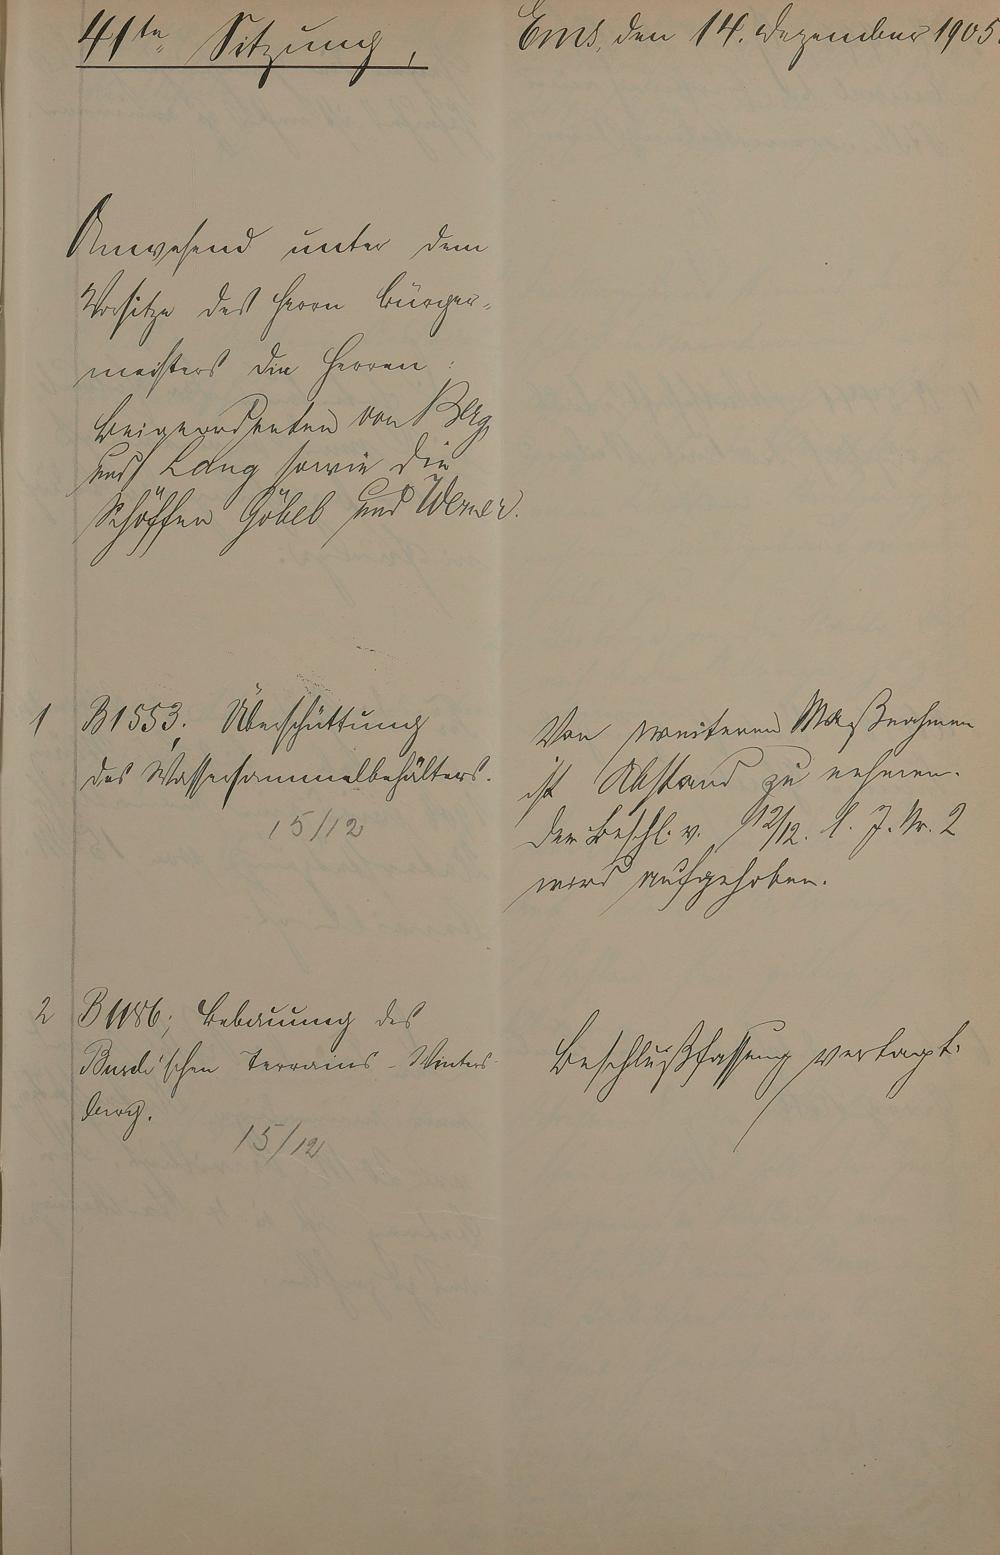 41te Sitzung,
Ems, den 14. Dezember 1905.
Anwesend unter dem
Vorsitze des Herrn Bürger-
meisters die Herren:
Beigeordneten von Berg
und Lang sowie die
Schöffen Göbel und Werner.
1 B 1553. Überschüttung
des Wassersammelbehälters.
15/12
Von weiteren Maßnahmen
ist Abstand zu nehmen.
Der Beschl. v. 12/12. l. J. Nr. 2
wird aufgehoben.
2 B 1186; Bebauung des
schen Terrains - Winters-
berg.
15/12
Beschlußfassung vertagt.